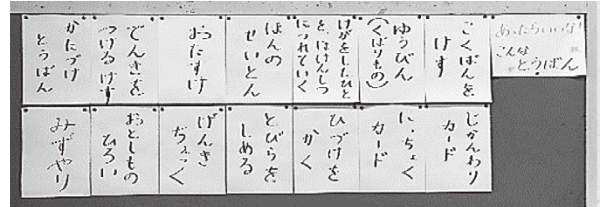 あったらいいな!
こんな
とうばん
こくばんを
けす
ゆうびん
(くばりもの)
けがをしたひと
を、ほけんしつ
につれていく
ほんの
せいとん
おたすけ
でんきを
つけるけす
かたづけ
とうばん
じかんわり
カード
にっちょく
カード
ひづけを
かく
とびらを
しめる
げんき
ちぇっく
おとしもの
ひろい
みずやり